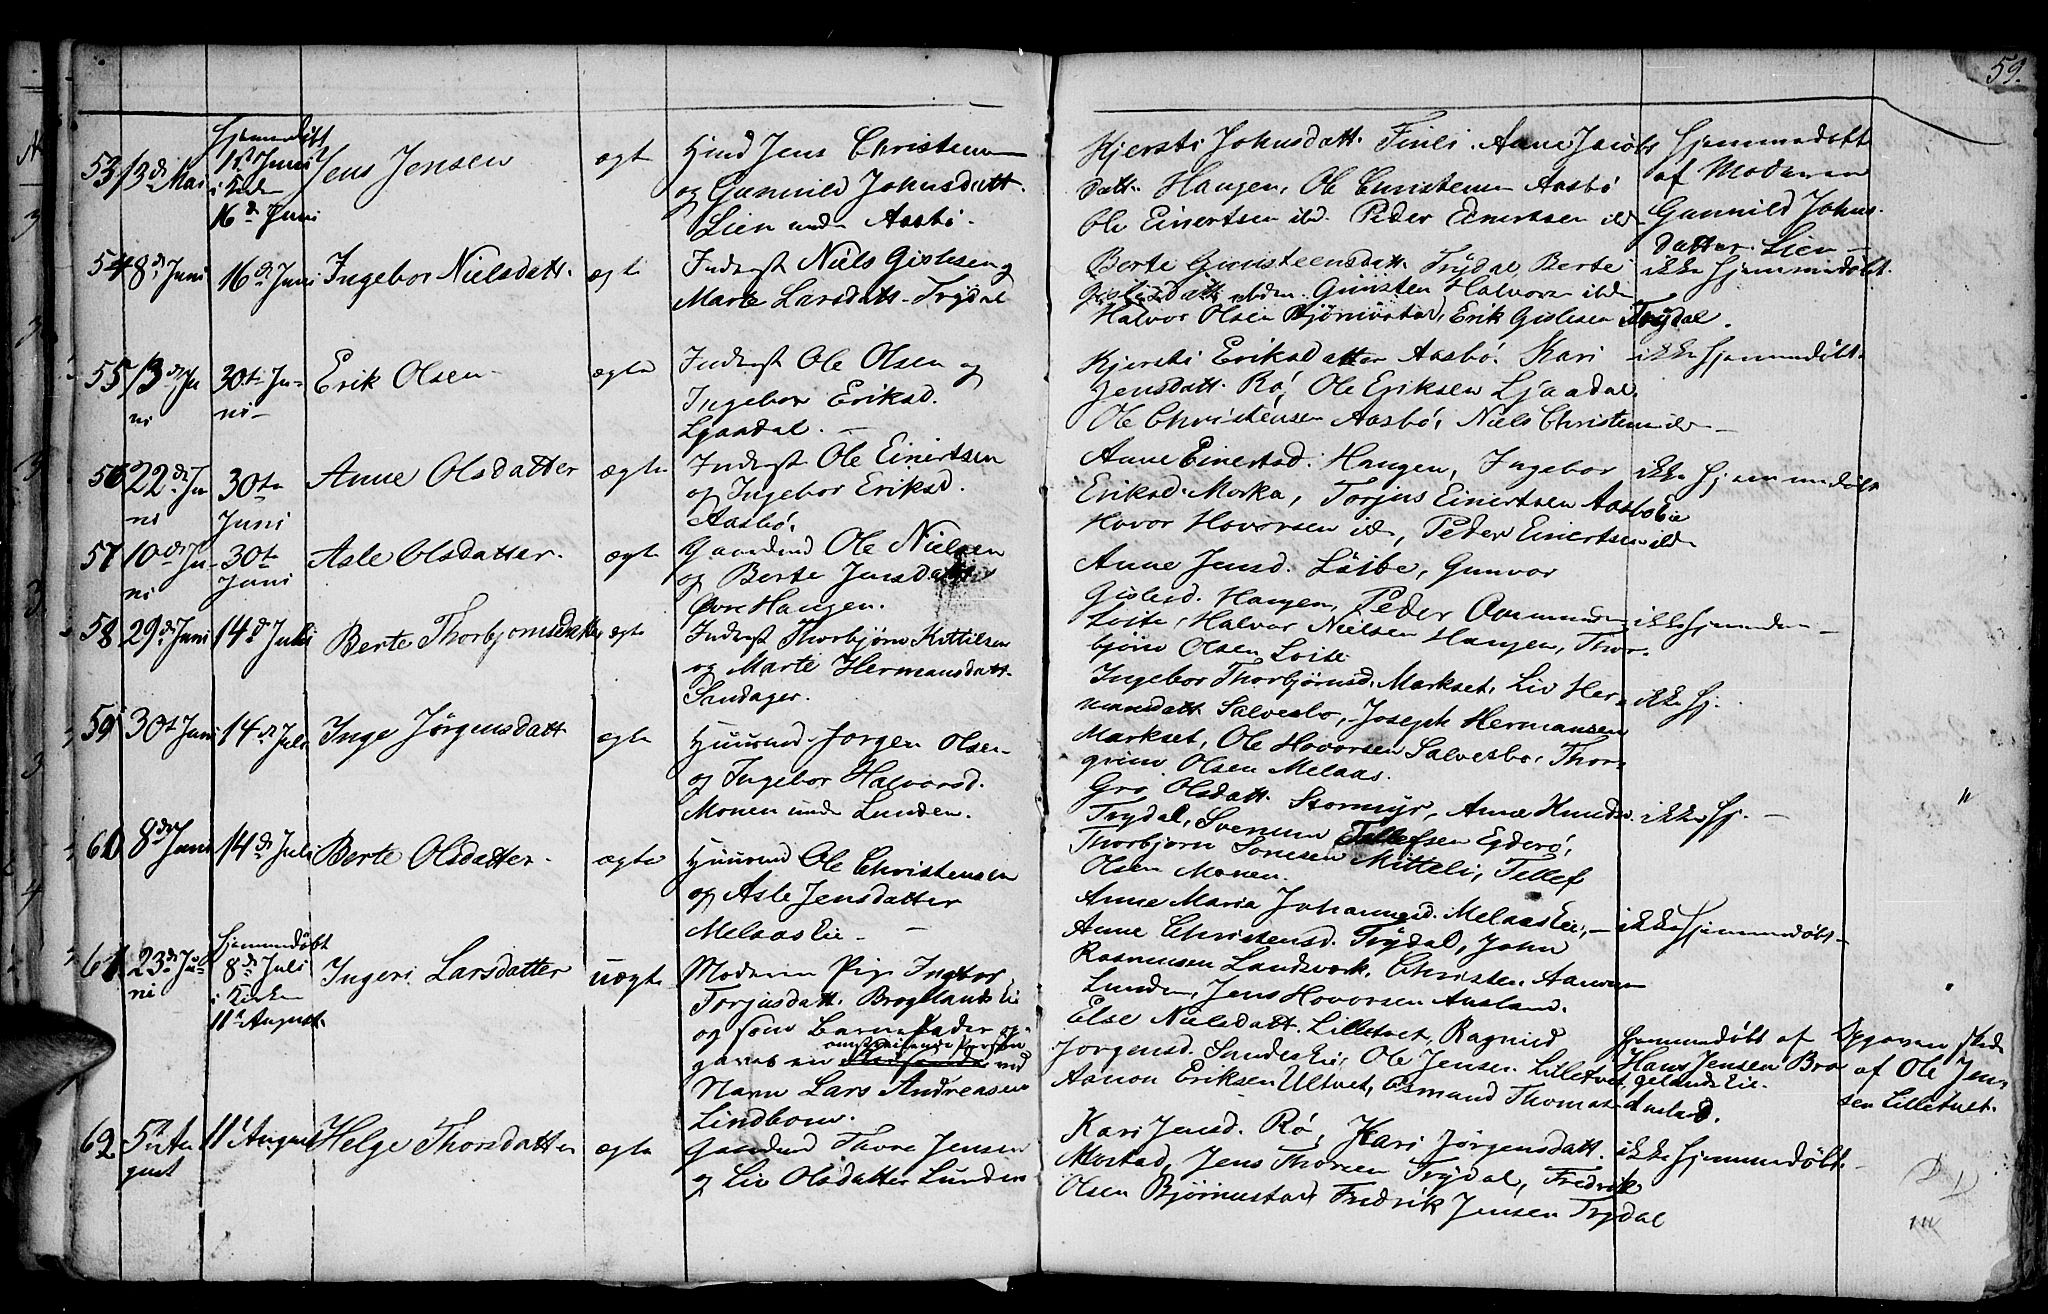 59.
53 13de Mai Hjemmedøbt 1ste Juni i Kirken 16de Juni Jens Jensen ægte Husmd Jens Christensen
og Gunnild Johnsdatt.
Lien under Aasbø.
Kjersti Johnsdatt. Finli. Anne Jacobs
datt. Haugen, Ole Christensen Aasbø
Ole Einertsen ibd. Peder Einertsen ibd.
Hjemmedøbt
af Moderen
Gunnild Johns-
datter Lien
54 8de Juni 16de Juni Ingebor Nielsdatt. ægte Inderst Niels Gislesen og
Marte Larsdatt. Trydal
Berte Gunsteensdatt. Trydal, Berte
Gislesdatt. ibdm. Gunsten Halvors. ibdm
Halvor Olsen Bjørnestad, Erik Gislesen Trydal.
ikke hjemmedøbt.
55 13de Ju
ni
30te Ju-
ni
Erik Olsen ægte Inderst Ole Olsen og
Ingebor Eriksd.
Ljaadal.
Kjersti Eriksdatter Aasbø. Kari
Jensdatt. Rø, Ole Eriksen Ljaadal.
Ole Christensen Aasbø, Niels Christensen ibd
ikke hjemmedøbt.
56 22de Ju
ni
30te
Juni
Anne Olsdatter ægte Inderst Ole Einertsen
og Ingebor Eriksd.
Aasbø.
Anne Einertsd. Haugen, Ingebor
Eriksd. Morka, Torjus Einertsen Aasbø Eie
Hovor Hovorsen ibd, Peder Einertsen ibd
ikke hjemmedøbt
57 10de Ju-
ni
30te
Juni
Asle Olsdatter. ægte Gaardmd Ole Nielsen
og Berte Jensdatter
Øvre Haugen.
Anne Jensd. Løite, Gunvor
Gislesd. Haugen, Peder Aanunsen
Loite, Halvor Nielsen Haugen, Thor-
bjørn Olsen Loite
ikke hjemmed
58 29de Juni 14de Juli Berte Thorbjornsdatter ægte Inderst Thorbjørn Kittilsen
og Marte Hermansdatt.
Sandager.
Ingebor Thorbjørnsd. Markset, Liv Her-
mansdatt Salvesbo, Joseph Hermansen
Markset, Ole Hovorsen Salvesbo, Thor-
grim Olsen Melaas.
ikke hj.
59 30te Juni 14de Juli Inge Jørgensdatt ægte Huusmd Jorgen Olsen
og Ingebor Halvorsd.
Monen under Lunden.
Gro Olsdatt. Stormyr, Anne Knudsd.
Trydal, Svenum Tellefsen Egderø,
Thorbjorn Sonesen Mitteli, Tellef
Olsen Monen.
ikke hj.
"
60 8de Juni 14de Juli Berte Olsdatter. ægte Huusmd Ole Christensen
og Asle Jensdatter
Melaas Eie
Anne Maria Johannesd. Melaas Eie,
Anne Christensd. Trydal, John
Rasmussen Landsverk, Christen Aanunsen
Lunden, Jens Hovorsen Ausland.
ikke hjemmedøbt
61 23de Ju-
ni
Hjemmedøbt
8de Juli
i Kirken
11te August.
Ingeri Larsdatter uægte Moderen Pige Ingebor
Torjusdatt. Brogelands Eie
og som Barnefader op-
gaves en omstreifende Person ved
Navn Lars Andreasen
Lindbom.
Else Nielsdatt. Lilletvet, Ragnild
Jorgensd. Sandes Eie, Ole Jensen Lilletvet,
Aanon Eriksen Ultvet, Osmund Thomas. Ausland.
Hjemmedøbt af
Hans Jensen Bro
gelands Eie.
Opgaven skede
af Ole Jen-
sen Lilletvet.
62. 5te Au
gust
11te August Helge Thorsdatter ægte Gaardmd Thore Jensen
og Liv Olsdatter Lunden
Kari Jensd. Rø, Kari Jørgensdatt.
Mostad, Jens Thorsen Trydal, Fredrik
Olsen Bjørnestad, Fredrik Jensen Trydal
ikke hjemmedøbt.